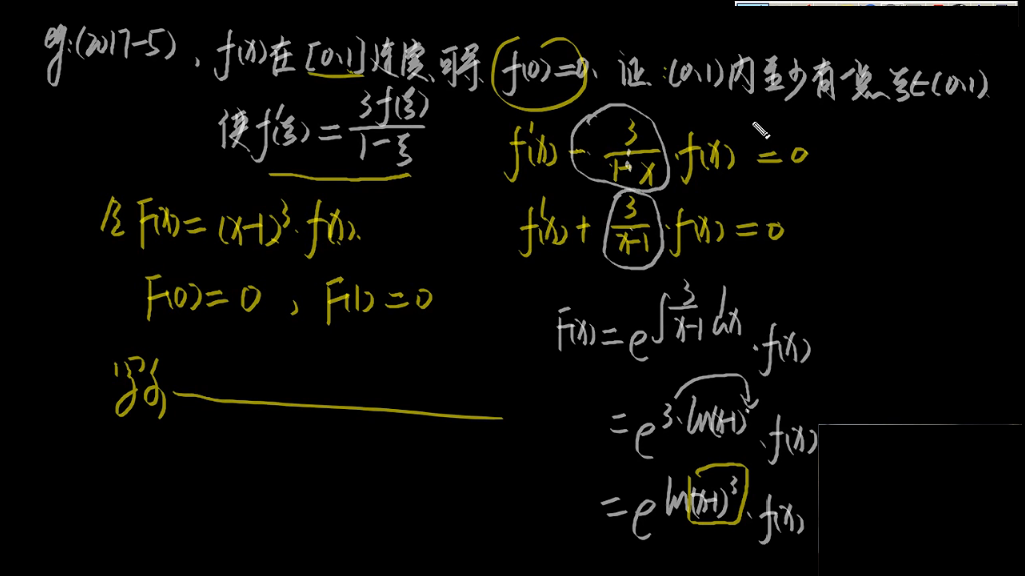 eg:(2017-5), f(x)在[0,1]连续,可导, f(0)=0, 证:(0,1)内至少有一点ξ∈(0,1)
使f'(ξ)=3f(ξ)/(1-ξ)
f'(x) - 3/(1-x)·f(x) = 0
f'(x) + 3/(x-1)·f(x) = 0
令F(x)=(x-1)³·f(x).
F(0)=0, F(1)=0
F(x)=e^∫3/(x-1)dx·f(x)
=e^3·ln(x-1)·f(x)
=e^ln(x-1)³·f(x)